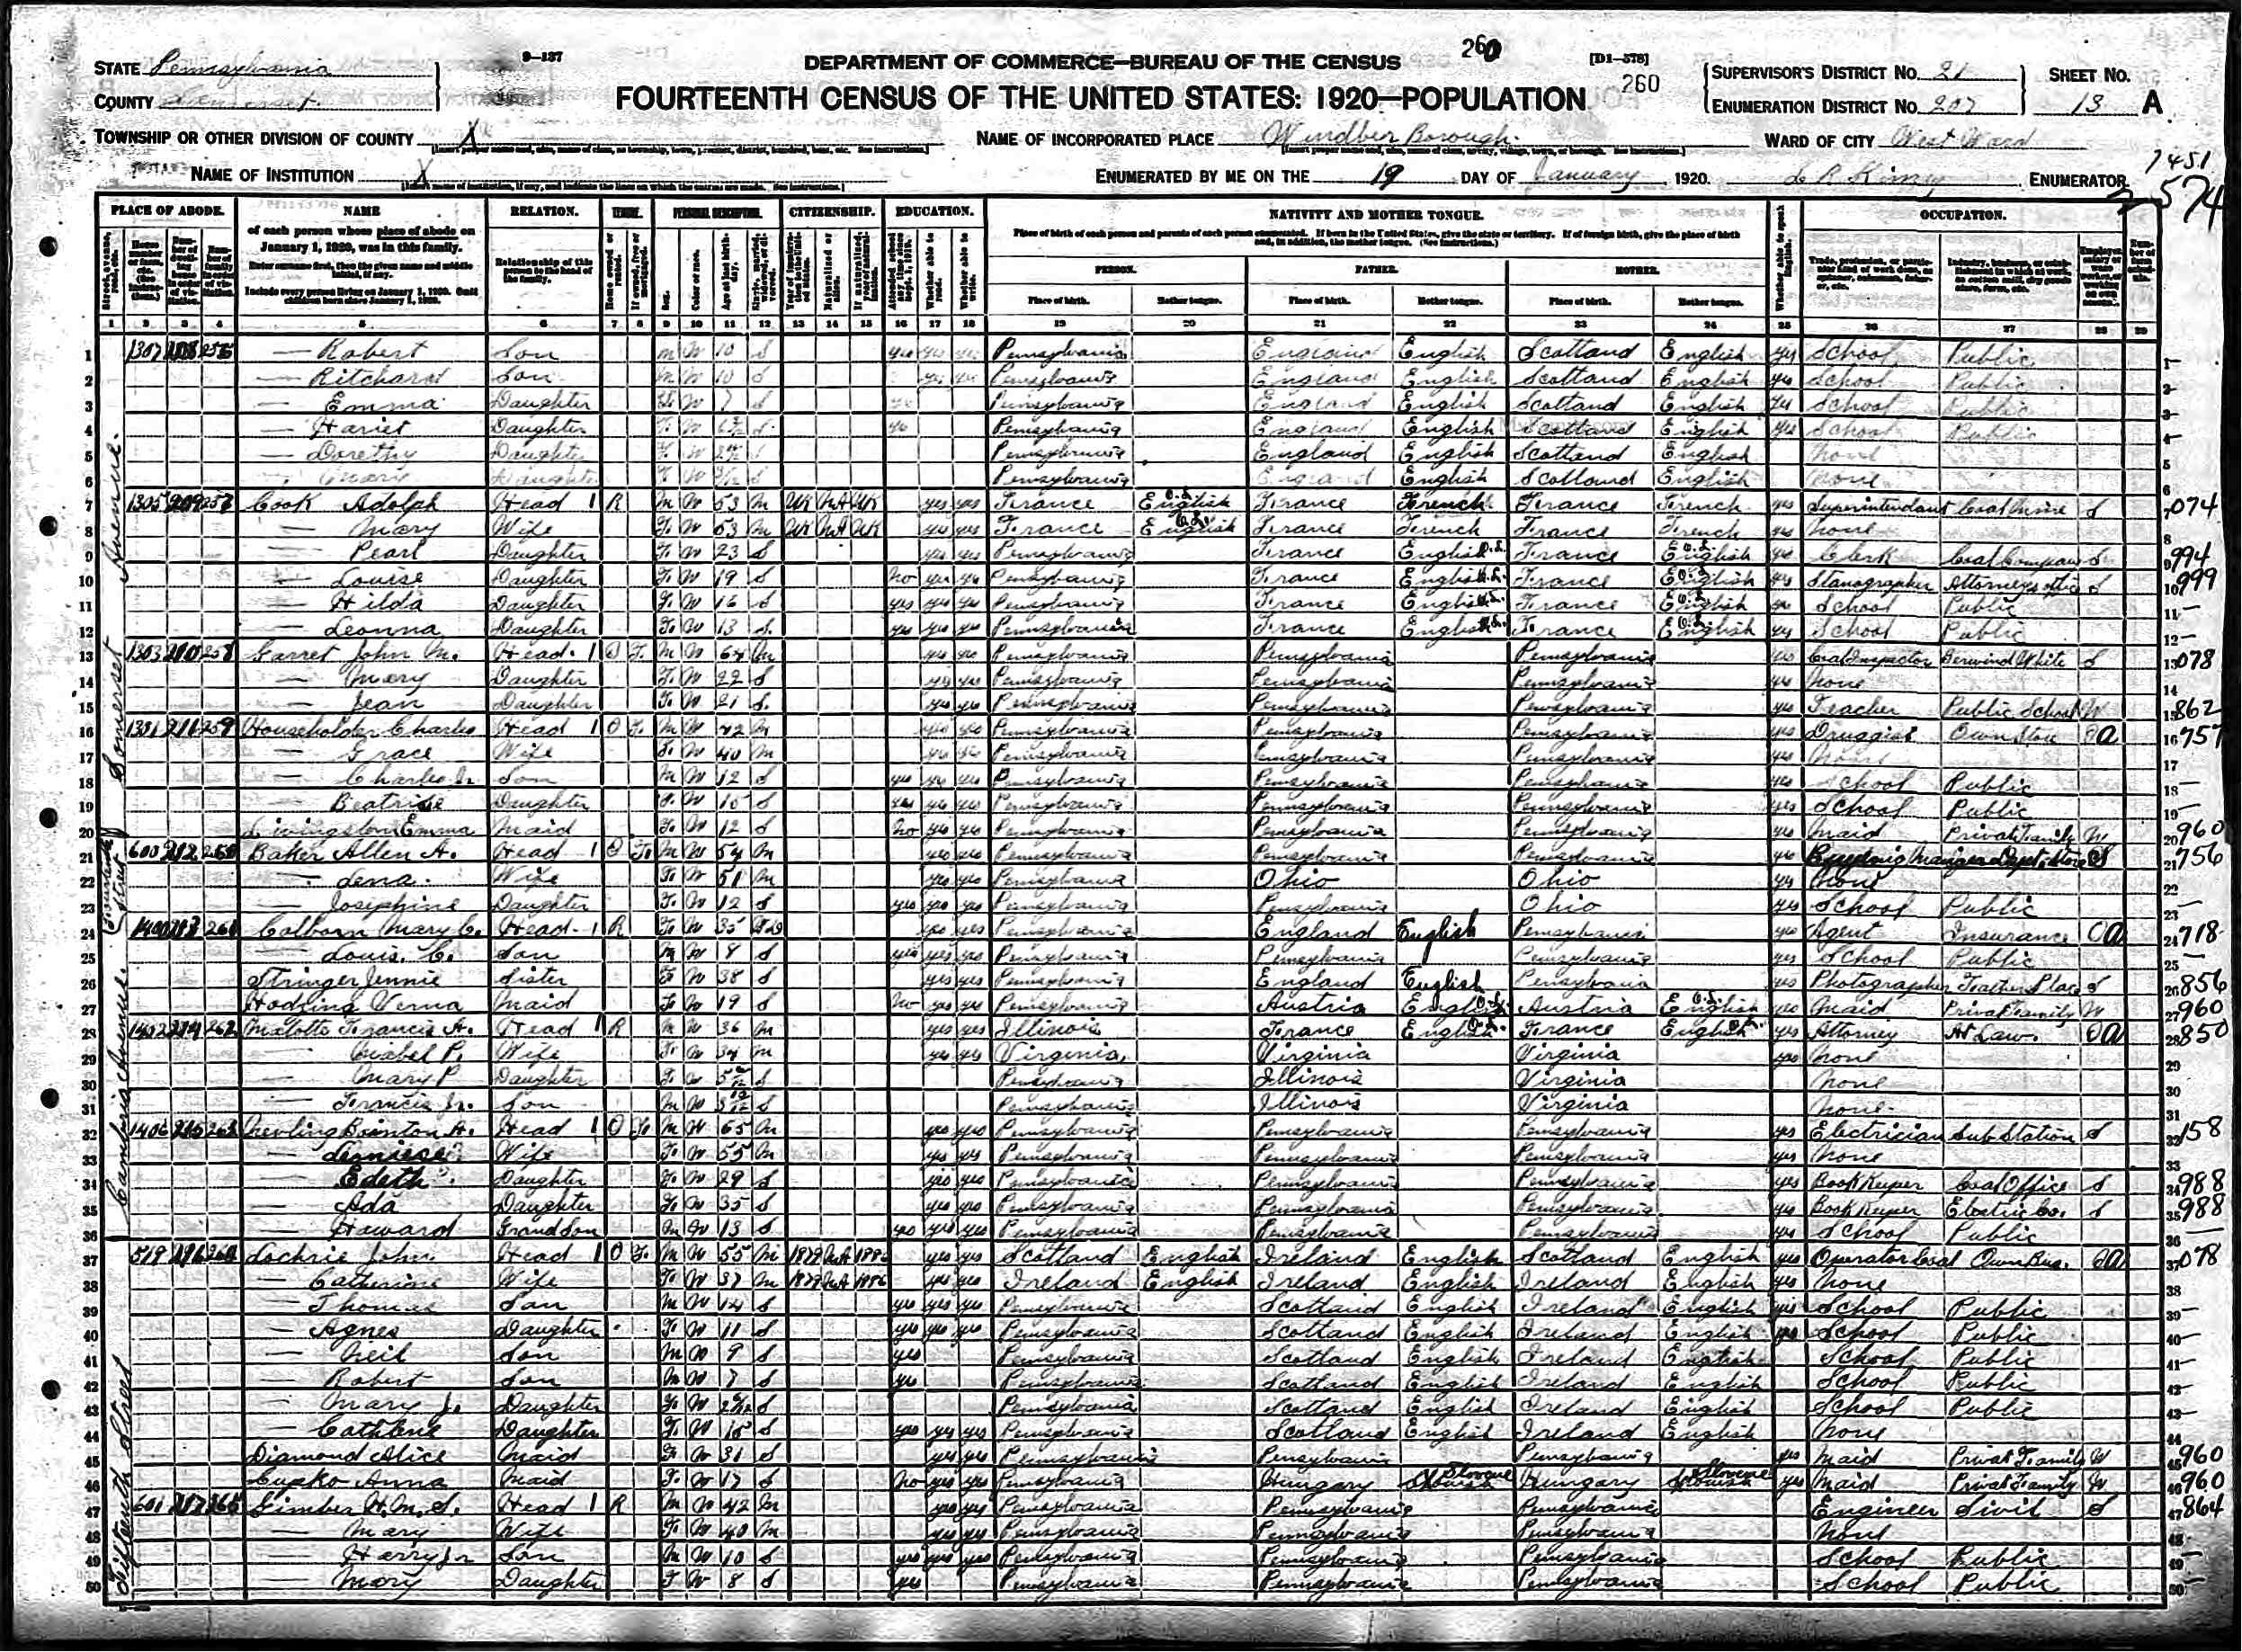 9—137
DEPARTMENT OF COMMERCE—BUREAU OF THE CENSUS
260
[D1—578]
260
STATE Pennsylvania
COUNTY Somerset
FOURTEENTH CENSUS OF THE UNITED STATES: 1920—POPULATION
SUPERVISOR'S DISTRICT NO. 21
ENUMERATION DISTRICT NO. 207
SHEET NO.
13 A
TOWNSHIP OR OTHER DIVISION OF COUNTY X
NAME OF INCORPORATED PLACE Windber Borough
WARD OF CITY West Ward
NAME OF INSTITUTION X
ENUMERATED BY ME ON THE 19 DAY OF January 1920.
ENUMERATOR
7451
574
PLACE OF ABODE. NAME RELATION. TENURE. PERSONAL DESCRIPTION. CITIZENSHIP. EDUCATION. NATIVITY AND MOTHER TONGUE. OCCUPATION.
of each person whose place of abode on January 1, 1920, was in this family.
Enter surname first, then the given name and middle initial, if any.
Include every person living on January 1, 1920. Omit children born since January 1, 1920.
Relationship of this person to the head of the family.
Place of birth of each person and parents of each person enumerated. If born in the United States, give the state or territory. If of foreign birth, give the place of birth and, in addition, the mother tongue. (See Instructions.)
PERSON. FATHER. MOTHER.
Place of birth. Mother tongue. Place of birth. Mother tongue. Place of birth. Mother tongue.
1 2 3 4 5 6 7 8 9 10 11 12 13 14 15 16 17 18 19 20 21 22 23 24 25 26 27 28 29
Somerset Avenue.
Fourteenth Street
Cambria Avenue.
Fifteenth Street
1 1307 — Robert Son M W 10 S yes yes yes Pennsylvania England English Scotland English yes School Public
2 — Ritchard Son M W 10 S yes yes Pennsylvania England English Scotland English yes School Public
3 — Emma Daughter F W 7 S Pennsylvania England English Scotland English yes School Public
4 — Hariet Daughter F W S Pennsylvania England English Scotland English yes School Public
5 — Dorethy Daughter F W S Pennsylvania England English Scotland English None
6 — Mary Daughter F W S Pennsylvania England English Scotland English None
7 1305 209 257 Cook Adolph Head 1 R M W 53 M UK NA UK yes yes France English France French France French yes Superintendant Coal Mine S 074
8 — Mary Wife F W 53 M UK NA UK yes yes France English France French France French yes None
9 — Pearl Daughter F W 23 S yes yes Pennsylvania France English France English yes Clerk Coal Company S 994
10 — Louise Daughter F W 19 S no yes yes Pennsylvania France English France English yes Stanographer Attorneys office S 999
11 — Hilda Daughter F W 16 S yes yes yes Pennsylvania France English France English yes School Public
12 — Leonna Daughter F W 13 S yes yes yes Pennsylvania France English France English yes School Public
13 1303 210 258 Garret John M. Head 1 O F M W 64 M yes yes Pennsylvania Pennsylvania Pennsylvania yes Coal Inspector Berwind White S 078
14 — Mary Daughter F W 22 S yes yes Pennsylvania Pennsylvania Pennsylvania yes None
15 — Jean Daughter F W 21 S yes yes Pennsylvania Pennsylvania Pennsylvania yes Teacher Public School W 862
16 1301 211 259 Householder Charles Head 1 O F M W 42 M yes yes Pennsylvania Pennsylvania Pennsylvania yes Druggist Own Store OA 757
17 — Grace Wife F W 40 M yes yes Pennsylvania Pennsylvania Pennsylvania yes None
18 — Charles Jr. Son M W 12 S yes yes yes Pennsylvania Pennsylvania Pennsylvania yes School Public
19 — Beatrice Daughter F W S yes yes yes Pennsylvania Pennsylvania Pennsylvania yes School Public
20 Livingston Emma Maid F W 12 S no yes yes Pennsylvania Pennsylvania Pennsylvania yes Maid Private Family W 960
21 600 212 260 Baker Allen A. Head 1 O F M W 54 M yes yes Pennsylvania Pennsylvania Pennsylvania yes Manager Dept. Store S 756
22 — Lena Wife F W 51 M yes yes Pennsylvania Ohio Ohio yes None
23 — Josephine Daughter F W 12 S yes yes yes Pennsylvania Pennsylvania Ohio yes School Public
24 1400 213 261 Colborn Mary C. Head 1 R F W 35 yes yes Pennsylvania England English Pennsylvania yes Agent Insurance OA 718
25 — Louis C. Son M W 8 S yes yes yes Pennsylvania Pennsylvania Pennsylvania yes School Public
26 Stringer Jennie Sister F W 38 S yes yes Pennsylvania England English Pennsylvania yes Photographer S 856
27 Verna Maid F W 19 S no yes yes Pennsylvania Austria English Austria English yes Maid Privat Family W 960
28 1402 214 262 Malotte Francis A. Head 1 R M W 36 M yes yes Illinois France English France English yes Attorney At Law. OA 850
29 — Mabel P. Wife F W 34 M yes yes Virginia Virginia Virginia yes None
30 — Mary P. Daughter F W S Pennsylvania Illinois Virginia None
31 — Francis Jr. Son M W S Pennsylvania Illinois Virginia None
32 1406 215 263 Nevling Brinton A. Head 1 O F M W 65 M yes yes Pennsylvania Pennsylvania Pennsylvania yes Electrician Sub Station S 158
33 — Wife F W 55 M yes yes Pennsylvania Pennsylvania Pennsylvania yes None
34 — Edith Daughter F W 29 S yes yes Pennsylvania Pennsylvania Pennsylvania yes Book Keeper Coal Office S 988
35 — Ada Daughter F W 35 S yes yes Pennsylvania Pennsylvania Pennsylvania yes Book Keeper Electric Co. S 988
36 — Howard Grand Son M W 13 S yes yes yes Pennsylvania Pennsylvania Pennsylvania yes School Public
37 519 216 264 Lochrie John Head 1 O F M W 55 M 1879 NA 1886 yes yes Scotland English Ireland English Scotland English yes Operator Coal Own Bus. OA 078
38 — Catherine Wife F W 37 M 1879 NA 1886 yes yes Ireland English Ireland English Ireland English yes None
39 — Thomas Son M W 14 S yes yes yes Pennsylvania Scotland English Ireland English yes School Public
40 — Agnes Daughter F W 11 S yes yes yes Pennsylvania Scotland English Ireland English yes School Public
41 — Neil Son M W 9 S yes Pennsylvania Scotland English Ireland English School Public
42 — Robert Son M W 7 S yes Pennsylvania Scotland English Ireland English School Public
43 — Mary J. Daughter F W S Pennsylvania Scotland English Ireland English School Public
44 — Cathlene Daughter F W S yes yes yes Pennsylvania Scotland English Ireland English None
45 Diamond Alice Maid F W 31 S yes yes Pennsylvania Pennsylvania Pennsylvania yes Maid Privat Family W 960
46 Anna Maid F W 17 S no yes yes Pennsylvania Hungary Slovene Hungary Slovene yes Maid Privat Family W 960
47 601 217 265 Gimber H. M. S. Head 1 R M W 42 M yes yes Pennsylvania Pennsylvania Pennsylvania Engineer Sivil S 864
48 — Mary Wife F W 40 M yes yes Pennsylvania Pennsylvania Pennsylvania None
49 — Harry Jr Son M W 10 S yes yes yes Pennsylvania Pennsylvania Pennsylvania School Public
50 — Mary Daughter F W 8 S yes Pennsylvania Pennsylvania Pennsylvania School Public